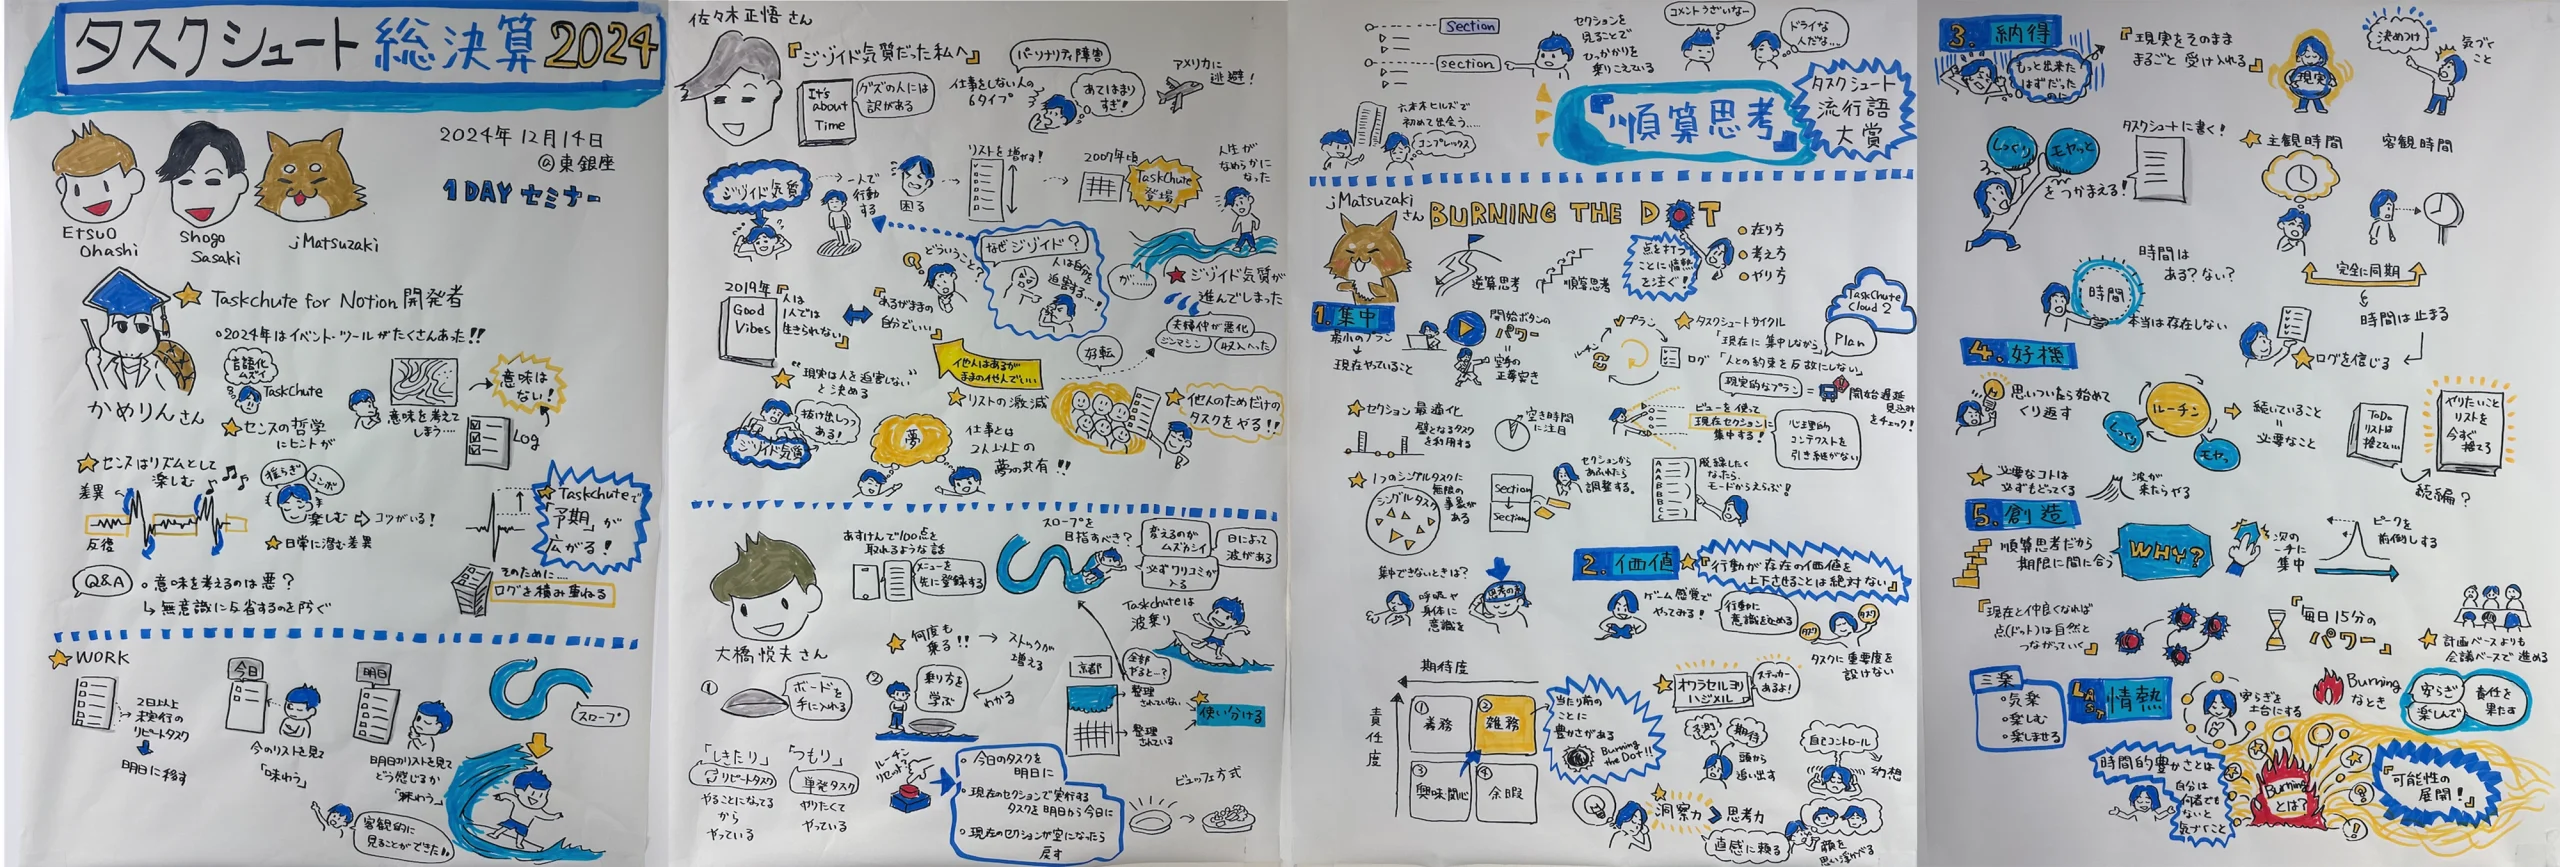 タスクシュート 総決算 2024
2024年 12月14日
@東銀座
1DAY セミナー
Etsuo
Ohashi
Shogo
Sasaki
jMatsuzaki
Taskchute for Notion 開発者
かめりんさん
2024年はイベント・ツールがたくさんあった!!
言語化
ムズイ
TaskChute
センスの哲学
にヒントが
意味を考えて
しまう……
意味は
ない!
Log
センスはリズムとして
楽しむ
差異
反復
揺らぎ
コンボ
楽しむ
コツがいる!
日常に潜む差異
Taskchuteで
「予期」が
広がる!
そのために…
ログを積み重ねる
Q&A
意味を考えるのは悪?
無意識に与省するのを防ぐ
WORK
2日以上
未実行の
リピートタスク
明日に移す
今日
今のリストを見て
「味わう」
明日
明日のリストを見て
どう感じるか
「味わう」
スロープ
客観的に
見ることができた!!
佐々木正悟さん
『ジゾイド気質だった私へ』
It's
about
Time
グズの人には
訳がある
パーソナリティ障害
仕事をしない人の
6タイプ
あてはまり
すぎ!
アメリカに
逃避!
ジゾイド気質
一人で
行動
する
困る
リストを増やす!
2007年頃
TaskChute
登場
人生が
なめらかに
なった
が…
ジゾイド気質が
進んでしまった
夫婦仲が悪化
ジンマシン
収入へった
どういうこと?
なぜジゾイド?
人は自分を
迫害する…!
2019年
Good
Vibes
『人は
1人では
生きられない』
『あるがままの
自分でいい』
他人はあるが
ままの他人でいい
"現実は人を迫害しない"
と決める
抜け出しつつ
ある!
ジゾイド気質
リストの激減
夢
仕事とは
2人以上の
夢の共有!!
好転
他人のためだけの
タスクをやる!!
大橋悦夫さん
あすけんで100点を
取れるような話
メニューを
先に登録する
スロープを
目指すべき?
変えるのが
ムズカシイ
必ずワリコミが
入る
日によって
波がある
Taskchuteは
波乗り
何度も
乗る!!
ストックが
増える
① ボードを
手に入れる
② 乗り方を
学ぶ
わかる
京都
全部
やると…?
整理
されていない
整理
されている
使い分ける
「しきたり」
リピートタスク
やることになってる
から
やっている
「つもり」
単発タスク
やりたくて
やっている
ルーチン
リセット?
今日のタスクを
明日に
現在のセクションで実行する
タスクを明日から今日に
現在のセクションが空になったら
戻す
ビュッフェ方式
section
section
セクションを
見ることで
ひっかかりを
乗りこえている
コメントうざいな…
ドライな
人だな…
六本木ヒルズで
初めて出会う……
コンプレックス
『順算思考』
タスクシュート
流行語
大賞
jMatsuzakiさん
BURNING THE DOT
逆算思考
順算思考
点を打つ
ことに情熱
を注ぐ!
在り方
考え方
やり方
1. 集中
最小のプラン
現在やっていること
開始ボタンの
パワー
空手の
正拳突き
プラン
ログ
ルーチン
タスクシュートサイクル
「現在に集中しながら」
「人との約束を反故にしない」
TaskChute
Cloud 2
Plan
現実的なプラン
開始遅延
見込み
をチェック!
セクション最適化
壁となるタスク
を利用する
空き時間
に注目
ビューを使って
現在セクションに
集中する!
心理的
コンテクストを
引き継がない
1つのシングルタスクに
無限の
事象が
ある
シングルタスク
Section
Section
セクションから
あふれたら
調整する。
A
A
B
B
C
C
脱線したく
なったら、
モードからえらぶ!
集中できないときは?
呼吸や
身体に
意識を
2. 価値
『行動が存在の価値を
上下させることは絶対ない』
ゲーム感覚で
やってみる!
行動に
意識を込める
タスク
タスク
タスクに重要度を
設けない
期待度
責任度
① 義務
② 雑務
③ 興味関心
④ 余暇
当たり前の
ことに
豊かさがある
Burning
the Dot!!
オワラセルヨリ
ハジメル
ステッカー
あるよ!
予測
期待
頭から
追い出す
自己コントロール
幻想
洞察力 > 思考力
直感に頼る
顔を
思い浮かべる
3. 納得
もっと出来た
はずだった
のに
『現実をそのまま
まるごと受け入れる』
現実
決めつけ
気づく
こと
しっくり
モヤっと
をつかまえる!
タスクシュートに書く!
主観時間
客観時間
完全に同期
時間は
ある?ない?
時間
本当は存在しない
時間は止まる
ログを信じる
4. 好機
思いついたら始めて
くり返す
ルーチン
しっくり
モヤっ
続いていること
=
必要なこと
ToDo
リストは
捨てなさい
やりたいこと
リストを
今すぐ
捨てろ
続編?
必要なコトは
必ずもどってくる
波が
来たらやる
5. 創造
順算思考だから
期限に間に合う
WHY?
次の
一手に
集中
ピークを
前倒しする
『現在と仲良くなれば
点(ドット)は自然と
つながっていく』
『毎日15分の
パワー』
計画ベースよりも
会議ベースで進める
三楽
気楽
楽しむ
楽しませる
LAST 情熱
安らぎを
土台にする
Burning
なとき
安らぎ
楽しんで
責任を
果たす
時間的豊かさとは
自分は
何者でも
ないと
気づくこと
Burning
とは?
『可能性の
展開!』